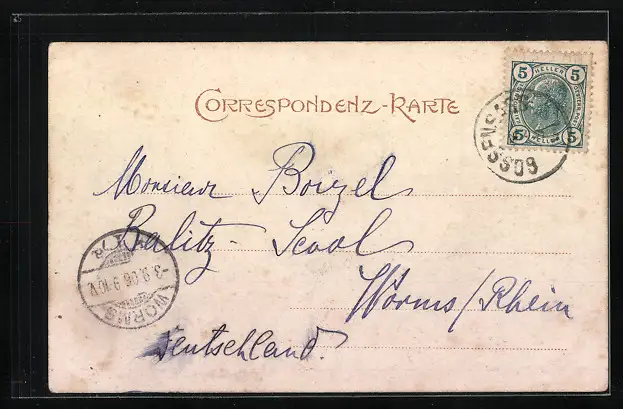 CORRESPONDENZ-KARTE
5 HELLER 5
5 HELLER 5
GOSSENSASS
Monsieur Boizel
Balitz-Scool
Worms/Rhein
Deutschland.
WORMS
-3.9.06.9-10V.